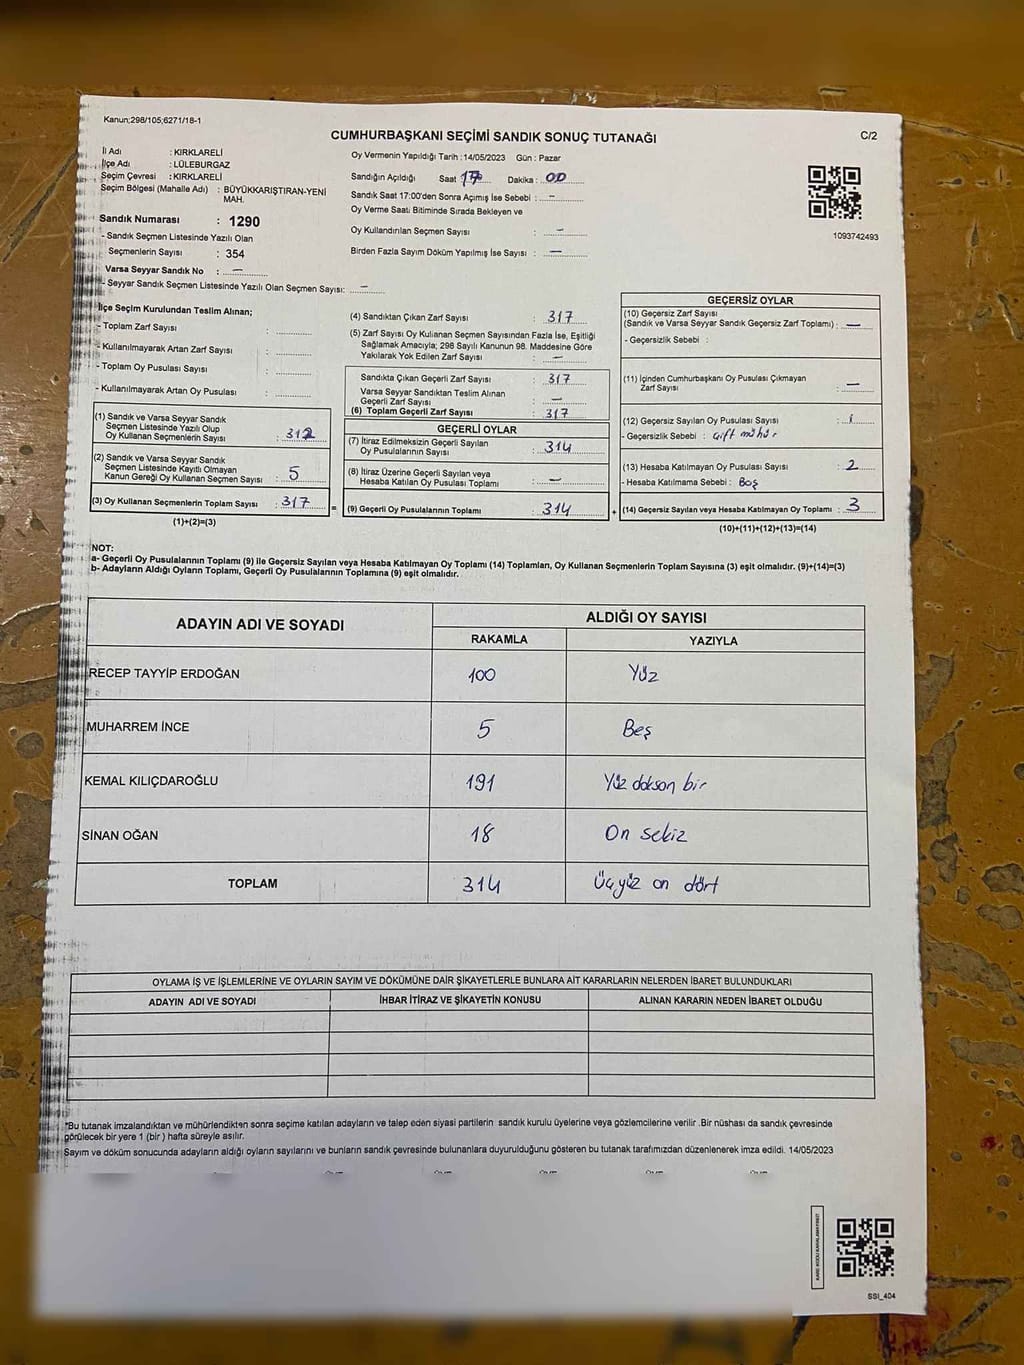 Kanun;298/105;6271/18-1
CUMHURBAŞKANI SEÇİMİ SANDIK SONUÇ TUTANAĞI
C/2
İl Adı : KIRKLARELİ
İlçe Adı : LÜLEBURGAZ
Seçim Çevresi : KIRKLARELİ
Seçim Bölgesi (Mahalle Adı) : BÜYÜKKARIŞTIRAN-YENİ
MAH.
Sandık Numarası : 1290
- Sandık Seçmen Listesinde Yazılı Olan
Seçmenlerin Sayısı : 354
Varsa Seyyar Sandık No : —
- Seyyar Sandık Seçmen Listesinde Yazılı Olan Seçmen Sayısı: —
Oy Vermenin Yapıldığı Tarih :14/05/2023 Gün : Pazar
Sandığın Açıldığı Saat 17 Dakika : 00
Sandık Saat 17:00'den Sonra Açımış İse Sebebi : —
Oy Verme Saati Bitiminde Sırada Bekleyen ve
Oy Kullandırılan Seçmen Sayısı : —
Birden Fazla Sayım Döküm Yapılmış İse Sayısı : —
1093742493
İlçe Seçim Kurulundan Teslim Alınan;
- Toplam Zarf Sayısı :
- Kullanılmayarak Artan Zarf Sayısı :
- Toplam Oy Pusulası Sayısı :
- Kullanılmayarak Artan Oy Pusulası :
(1) Sandık ve Varsa Seyyar Sandık
Seçmen Listesinde Yazılı Olup
Oy Kullanan Seçmenlerin Sayısı : 312
(2) Sandık ve Varsa Seyyar Sandık
Seçmen Listesinde Kayıtlı Olmayan
Kanun Gereği Oy Kullanan Seçmen Sayısı : 5
(3) Oy Kullanan Seçmenlerin Toplam Sayısı : 317
(1)+(2)=(3)
(4) Sandıktan Çıkan Zarf Sayısı : 317
(5) Zarf Sayısı Oy Kullanan Seçmen Sayısından Fazla İse, Eşitliği
Sağlamak Amacıyla; 298 Sayılı Kanunun 98. Maddesine Göre
Yakılarak Yok Edilen Zarf Sayısı : —
Sandıkta Çıkan Geçerli Zarf Sayısı : 317
Varsa Seyyar Sandıktan Teslim Alınan
Geçerli Zarf Sayısı : —
(6) Toplam Geçerli Zarf Sayısı : 317
GEÇERLİ OYLAR
(7) İtiraz Edilmeksizin Geçerli Sayılan
Oy Pusulalarının Sayısı : 314
(8) İtiraz Üzerine Geçerli Sayılan veya
Hesaba Katılan Oy Pusulası Toplamı : —
= (9) Geçerli Oy Pusulalarının Toplamı : 314 +
GEÇERSİZ OYLAR
(10) Geçersiz Zarf Sayısı
(Sandık ve Varsa Seyyar Sandık Geçersiz Zarf Toplamı) : —
- Geçersizlik Sebebi :
(11) İçinden Cumhurbaşkanı Oy Pusulası Çıkmayan
Zarf Sayısı : —
(12) Geçersiz Sayılan Oy Pusulası Sayısı : 1
- Geçersizlik Sebebi : Çift mühür
(13) Hesaba Katılmayan Oy Pusulası Sayısı : 2
- Hesaba Katılmama Sebebi : Boş
(14) Geçersiz Sayılan veya Hesaba Katılmayan Oy Toplamı : 3
(10)+(11)+(12)+(13)=(14)
NOT:
a- Geçerli Oy Pusulalarının Toplamı (9) ile Geçersiz Sayılan veya Hesaba Katılmayan Oy Toplamı (14) Toplamları, Oy Kullanan Seçmenlerin Toplam Sayısına (3) eşit olmalıdır. (9)+(14)=(3)
b- Adayların Aldığı Oyların Toplamı, Geçerli Oy Pusulalarının Toplamına (9) eşit olmalıdır.
ADAYIN ADI VE SOYADI
ALDIĞI OY SAYISI
RAKAMLA YAZIYLA
RECEP TAYYİP ERDOĞAN 100 Yüz
MUHARREM İNCE 5 Beş
KEMAL KILIÇDAROĞLU 191 Yüz doksan bir
SİNAN OĞAN 18 On sekiz
TOPLAM 314 Üçyüz on dört
OYLAMA İŞ VE İŞLEMLERİNE VE OYLARIN SAYIM VE DÖKÜMÜNE DAİR ŞİKAYETLERLE BUNLARA AİT KARARLARIN NELERDEN İBARET BULUNDUKLARI
ADAYIN ADI VE SOYADI İHBAR İTİRAZ VE ŞİKAYETİN KONUSU ALINAN KARARIN NEDEN İBARET OLDUĞU
*Bu tutanak imzalandıktan ve mühürlendikten sonra seçime katılan adayların ve talep eden siyasi partilerin sandık kurulu üyelerine veya gözlemcilerine verilir .Bir nüshası da sandık çevresinde
görülecek bir yere 1 (bir ) hafta süreyle asılır.
Sayım ve döküm sonucunda adayların aldığı oyların sayılarını ve bunların sandık çevresinde bulunanlara duyurulduğunu gösteren bu tutanak tarafımızdan düzenlenerek imza edildi. 14/05/2023
SSI_404